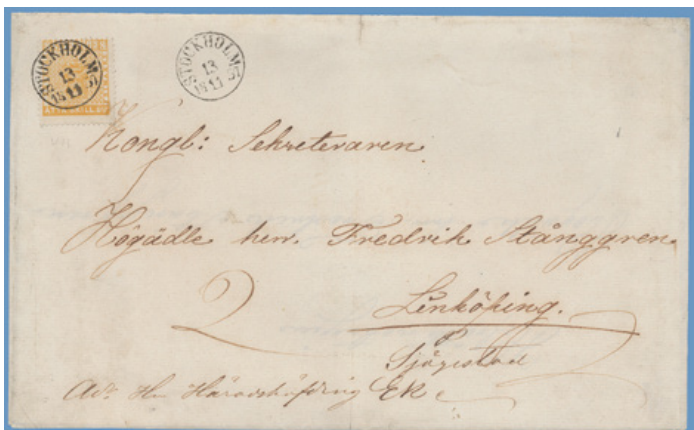 STOCKHOLM
13
11
STOCKHOLM
13
11
Kongl: Sekreteraren
Högädle herr. Fredrik Stånggren
2
Linköping.
Sjögestad
Adr. Hr Häradshöfding Ek